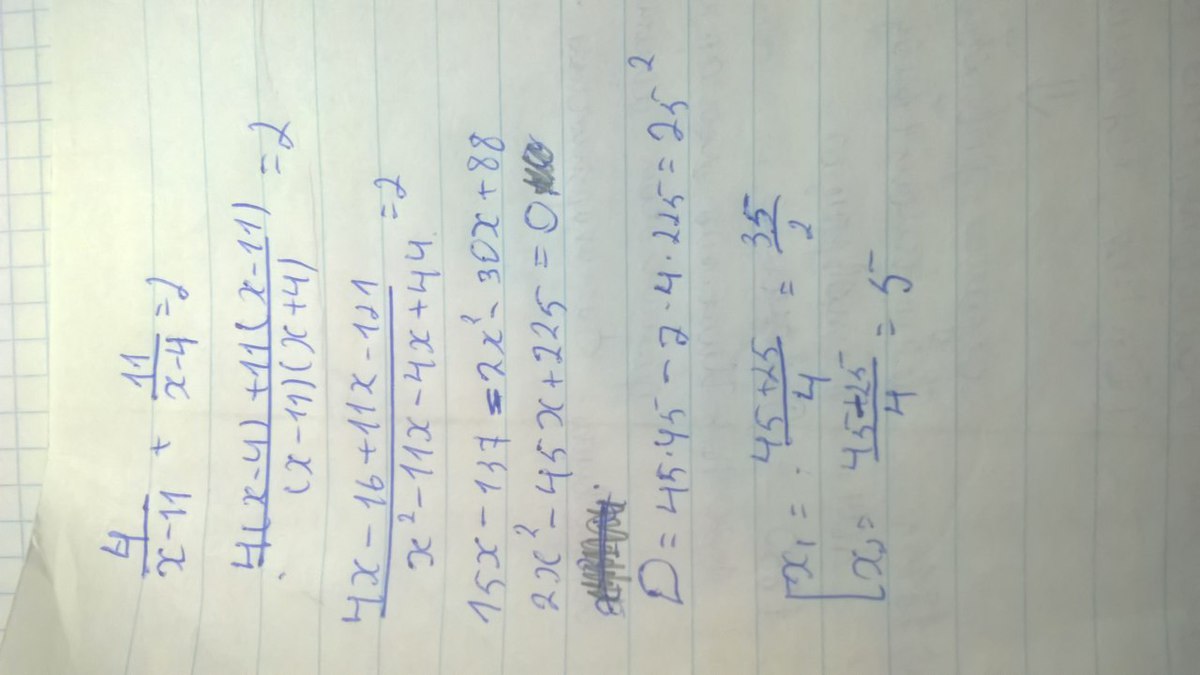 4/(x-11) + 11/(x-4) = 2
(4(x-4)+11(x-11))/((x-11)(x+4)) = 2
(4x-16+11x-121)/(x²-11x-4x+44) = 2
15x-137=2x²-30x+88
2x²-45x+225=0
D=45·45-2·4·225=25²
[x₁ = (45+25)/4 = 35/2
[x₂ = (45-25)/4 = 5